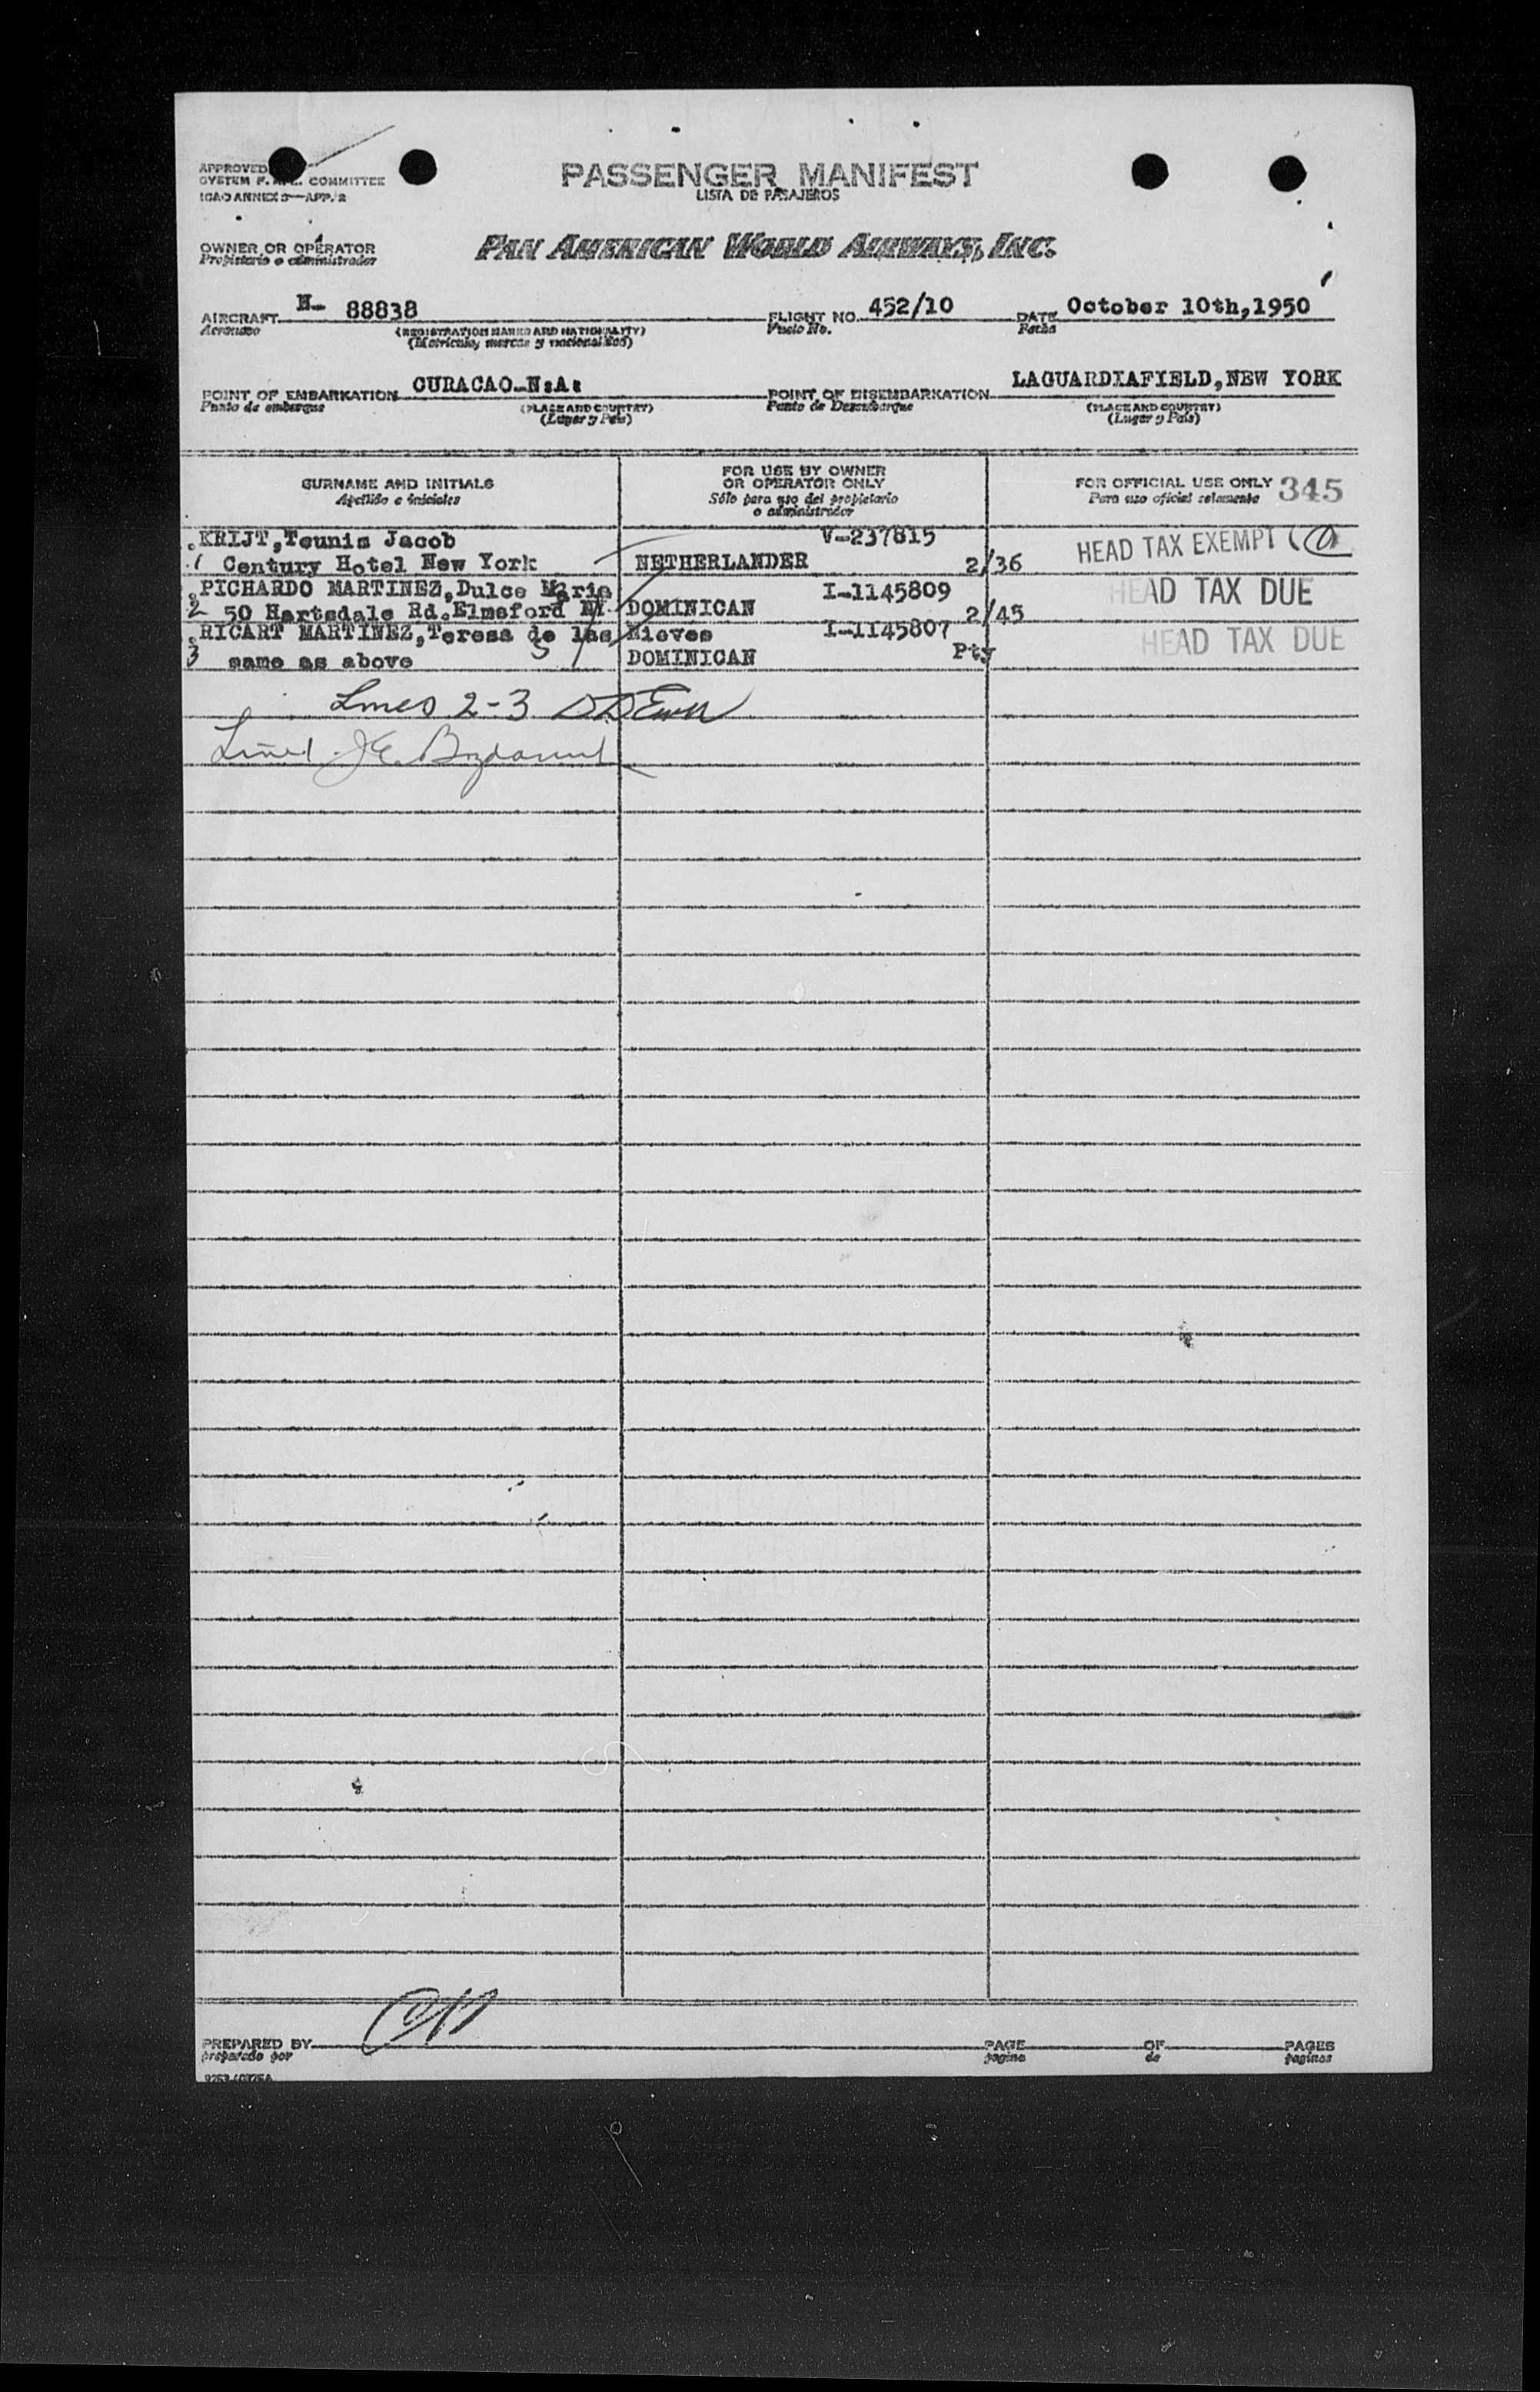 PASSENGER MANIFEST
LISTA DE PASAJEROS
APPROVED
SYSTEM F. COMMITTEE
ICAO ANNEX 9—APP. 2
OWNER OR OPERATOR
Propietario o administrador
PAN AMERICAN WORLD AIRWAYS, INC.
AIRCRAFT N- 88838 FLIGHT NO. 452/10 DATE October 10th,1950
Aeronave (REGISTRATION MARKS AND NATIONALITY) Vuelo No. Fecha
(Matricula, marcas y nacionalidad)
POINT OF EMBARKATION CURACAO.N.A. POINT OF DISEMBARKATION LAGUARDIAFIELD,NEW YORK
Punto de embarque (PLACE AND COUNTRY) Punto de Desembarque (PLACE AND COUNTRY)
(Lugar y Pais) (Lugar y Pais)
SURNAME AND INITIALS FOR USE BY OWNER OR OPERATOR ONLY FOR OFFICIAL USE ONLY 345
Apellido e iniciales Sólo para uso del propietario o administrador Para uso oficial solamente
KRIJT,Teunis Jacob V-237815 HEAD TAX EXEMPT
1 Century Hotel New York NETHERLANDER 2/36
PICHARDO MARTINEZ,Dulce Maria I-1145809 HEAD TAX DUE
2 50 Hartsdale Rd.Elmsford DOMINICAN 2/45
RICART MARTINEZ,Teresa de las Nieves I-1145807 HEAD TAX DUE
3 same as above 5 DOMINICAN Pty
Lines 2-3
PREPARED BY PAGE OF PAGES
preparado por pagina de paginas